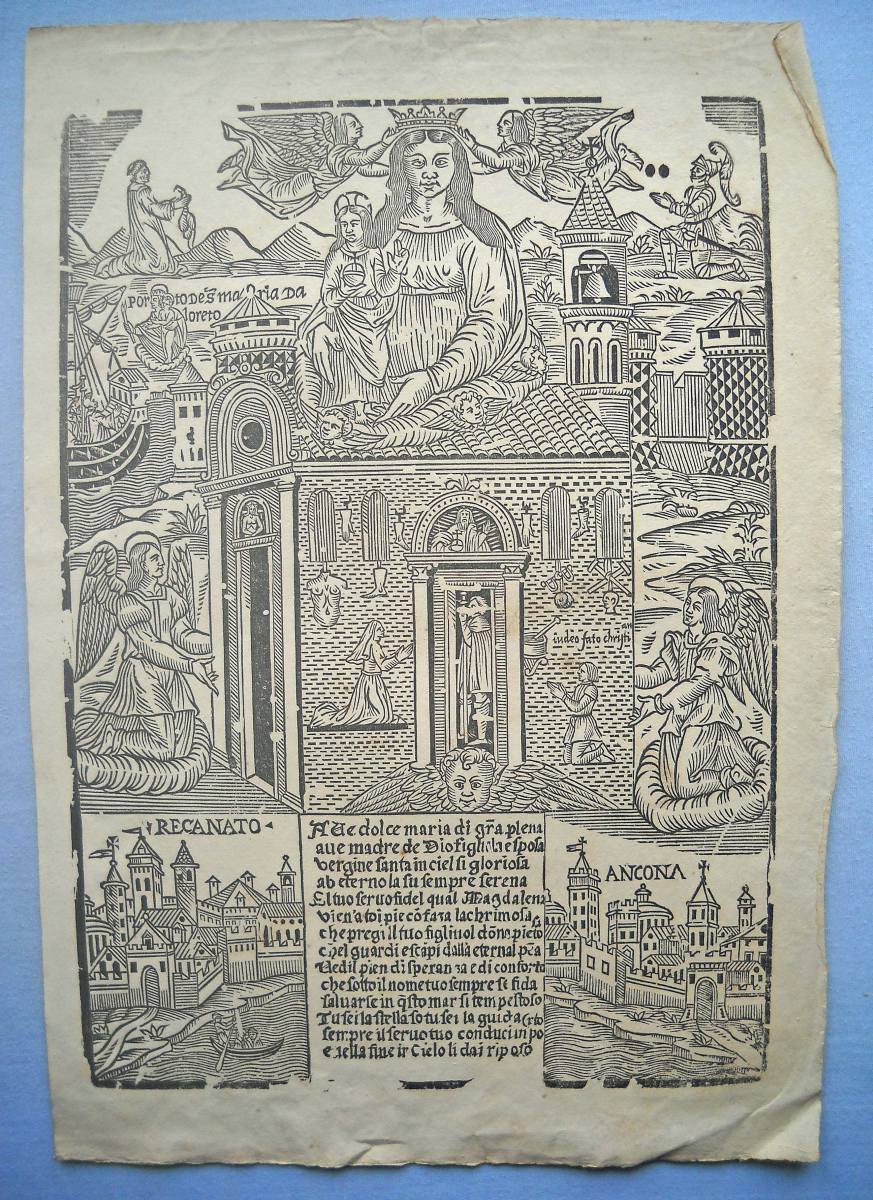 PORTO DE S̃ MARIA DA
loreto
an
iudeo fato christi
RECANATO
AUe dolce maria di gr̃a plena
aue madre de Dio figliola e sposa
vergine santa in ciel si gloriosa
ab eterno la su sempre serena
El tuo seruo fidel qual Magdalena
vien a toi pie cō faza lachrimosa
che pregi il tuo figliuol
chel guardi e scapi dalla eternal
Uedil pien di speranza e di conforto
che sotto il nome tuo sempre si fida
saluarse in q̄sto mar si tempestoso
Tu sei la stella so tu sei la guida
sempre il seruo tuo conduci in po
rto
e nella fine in Cielo li dai riposo
ANCONA